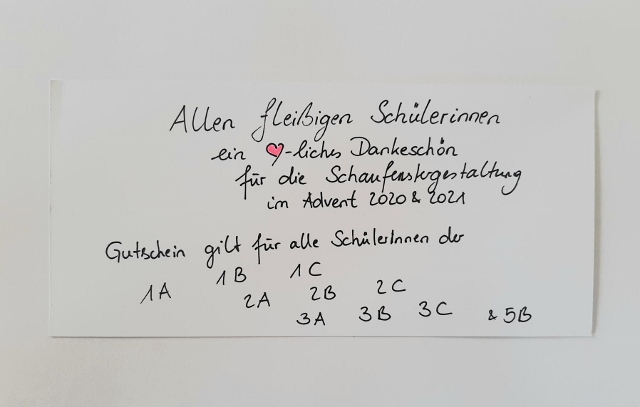 Allen fleißigen Schülerinnen
ein ♡-liches Dankeschön
für die Schaufenstergestaltung
im Advent 2020 & 2021
Gutschein gilt für alle SchülerInnen der
1A 1B 1C
2A 2B 2C
3A 3B 3C & 5B